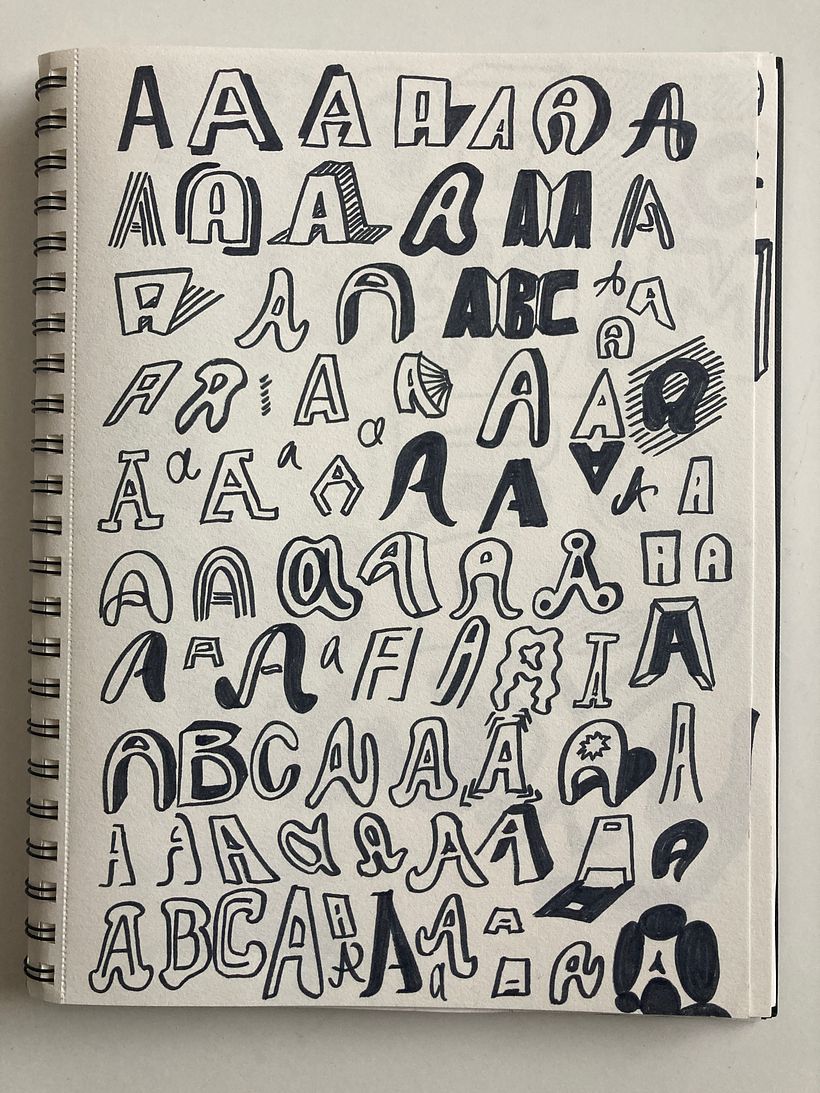 A A A A A A A
A A A A AA A
A A A ABC A A A
A A A A A A A
A a A a A a A A A A A
A A a A A A A A
A A A a A A A A A
ABC A A A A A
A A A a A A A A A
ABCA A A A A a A A A A